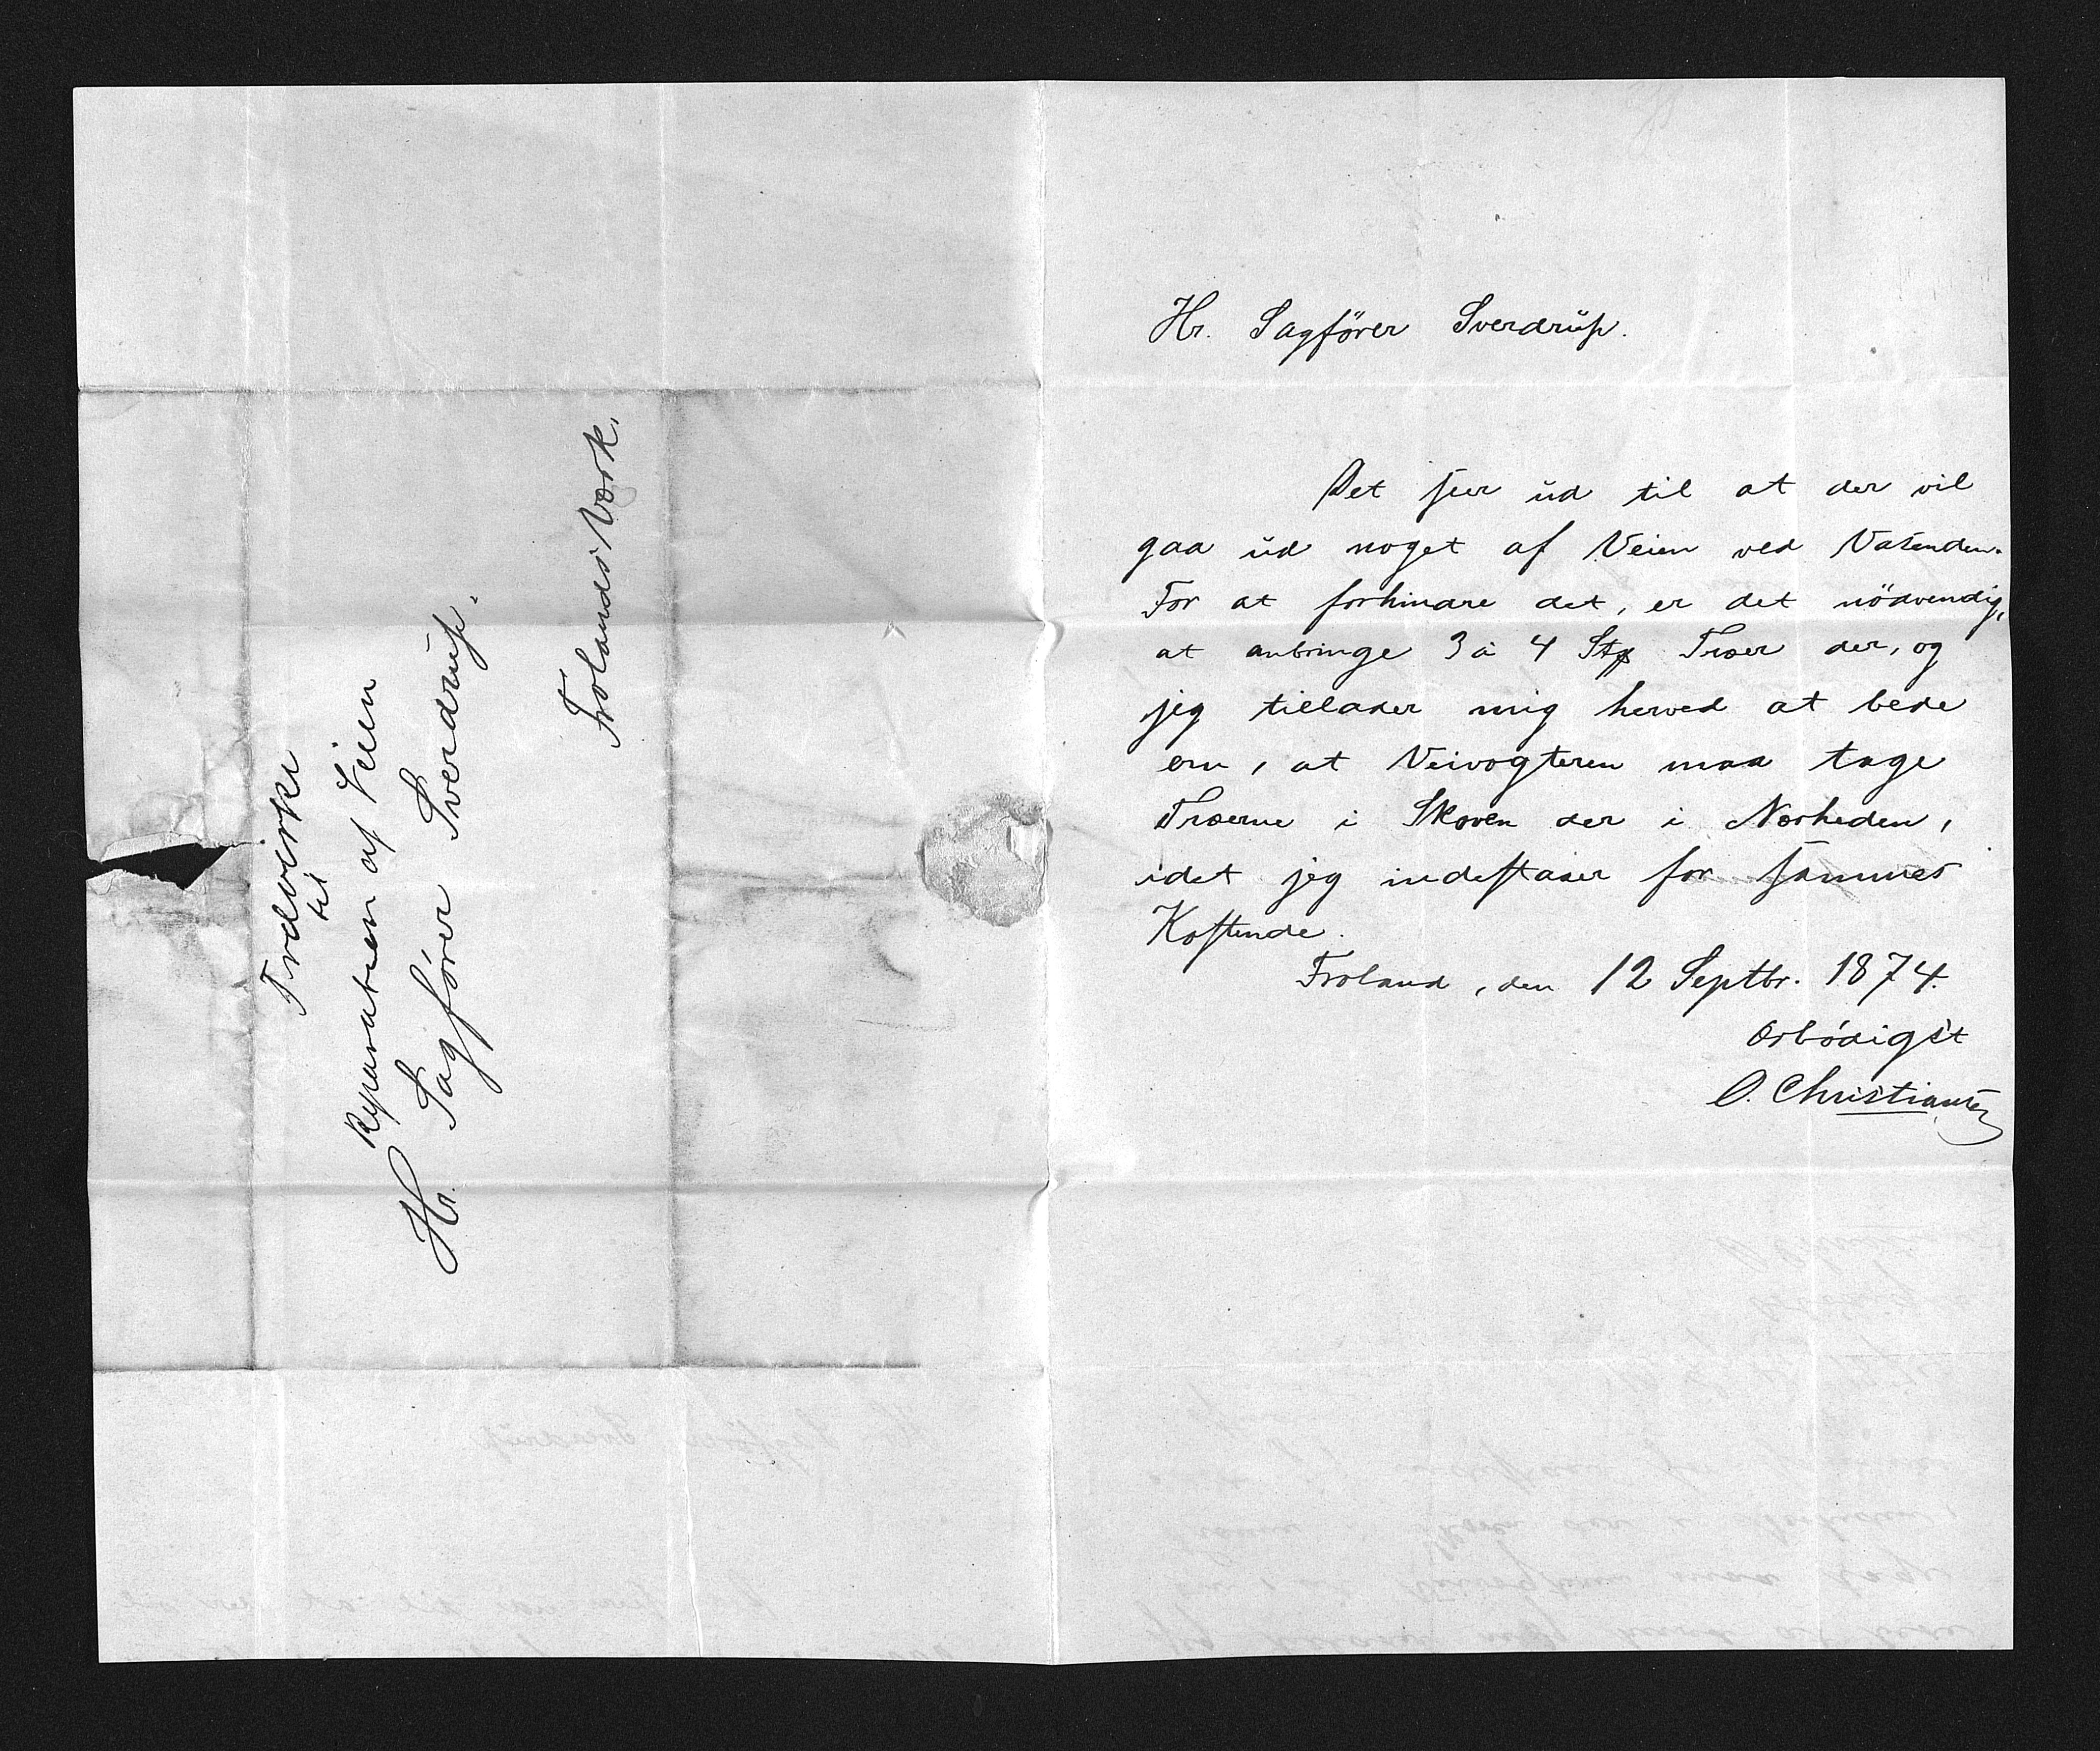 Trælvirke
til
Reparation af Veien
Hr. Sagfører Sverdrup.
Frolands Værk.
Hr. Sagförer Sverdrŭp.
Det seer ŭd til at der vil
gaa ŭd noget af Veien ved Vasenden.
For at forhindre det, er det nödvendig,
at anbringe 3 à 4 Stk Træer der, og
jeg tillader mig herved at bede
om, at Veivogteren maa tage
Træerne i Skoven der i Nærheden,
idet jeg indestaaer for sammes
Kostende.
Froland, den 12 Septbr. 1874.
Ærbödigst
O. Christiansen